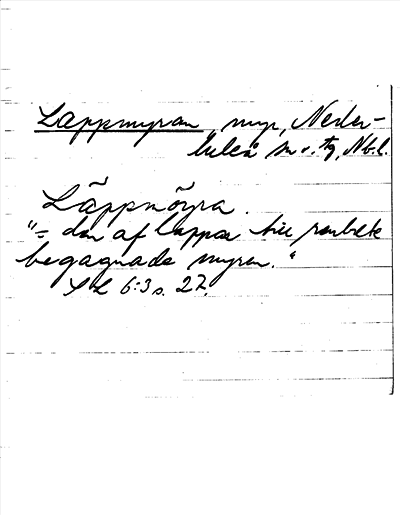 Lappmyran, myr, Neder-
luleå sn o. tg, Nb. l.
Lãppmõyra.
"= den af lappar till renbete
begagnade myren."
SL 6:3 s. 27.